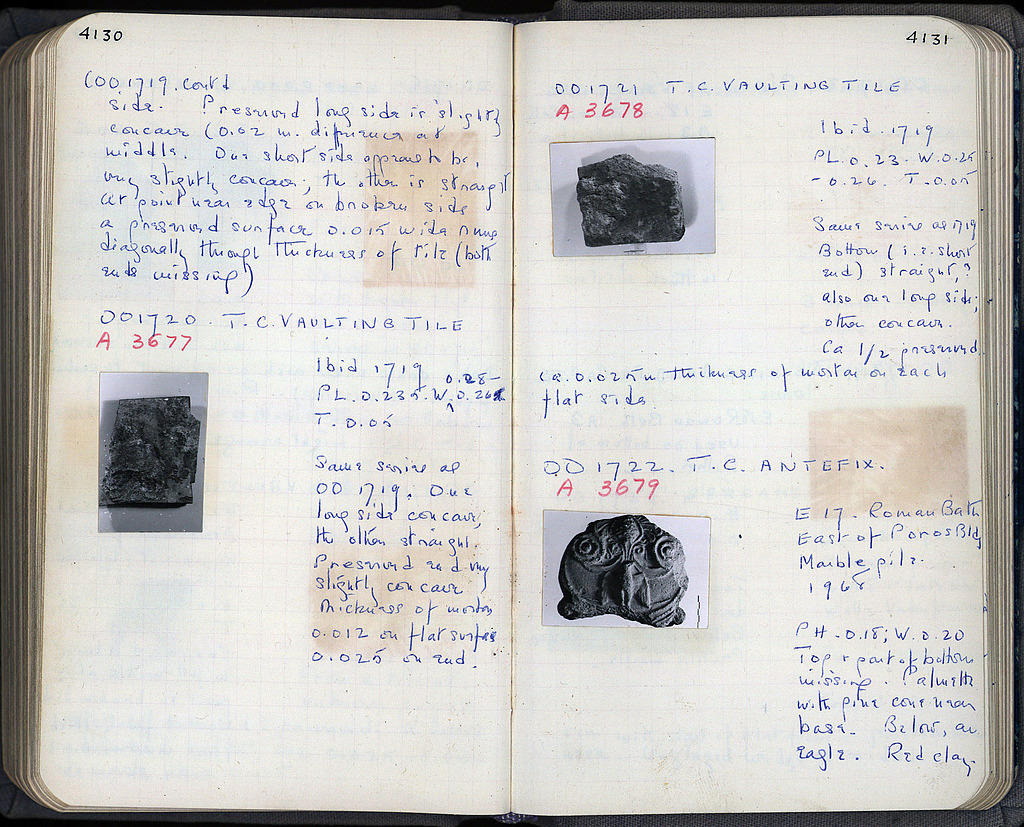 4130
(OO 1719 cont'd
side. Preserved long side is slightly
concave (0.02 m. difference at
middle. One short side appears to be
very slightly concave; the other is straight
At point near edge on broken side
a preserved surface 0.015 wide runs
diagonally through thickness of tile (both
ends missing)
OO1720. T.C. VAULTING TILE
A 3677
Ibid 1719
0.28-
PL. 0.235. W. 0.26
T. 0.05
Same series as
OO 1719. One
long side concave,
the other straight.
Preserved end very
slightly concave
Thickness of mortar
0.012 on flat surface
0.025 on end.
4131
OO1721 T.C. VAULTING TILE
A 3678
Ibid. 1719
PL. 0.23. W. 0.25
-0.26. T. 0.05
Same series as 1719
Bottom (i.e. short
end) straight, ?
also one long side;
other concave.
Ca 1/2 preserved
Ca. 0.025 m thickness of mortar on each
flat side
OO 1722. T.C. ANTEFIX.
A 3679
E 17. Roman Bath
East of Poros Bldg
Marble pile.
PH. 0.18; W. 0.20
Top & part of bottom
missing. Palmette
with pine cone near
base. Below, an
eagle. Red clay.